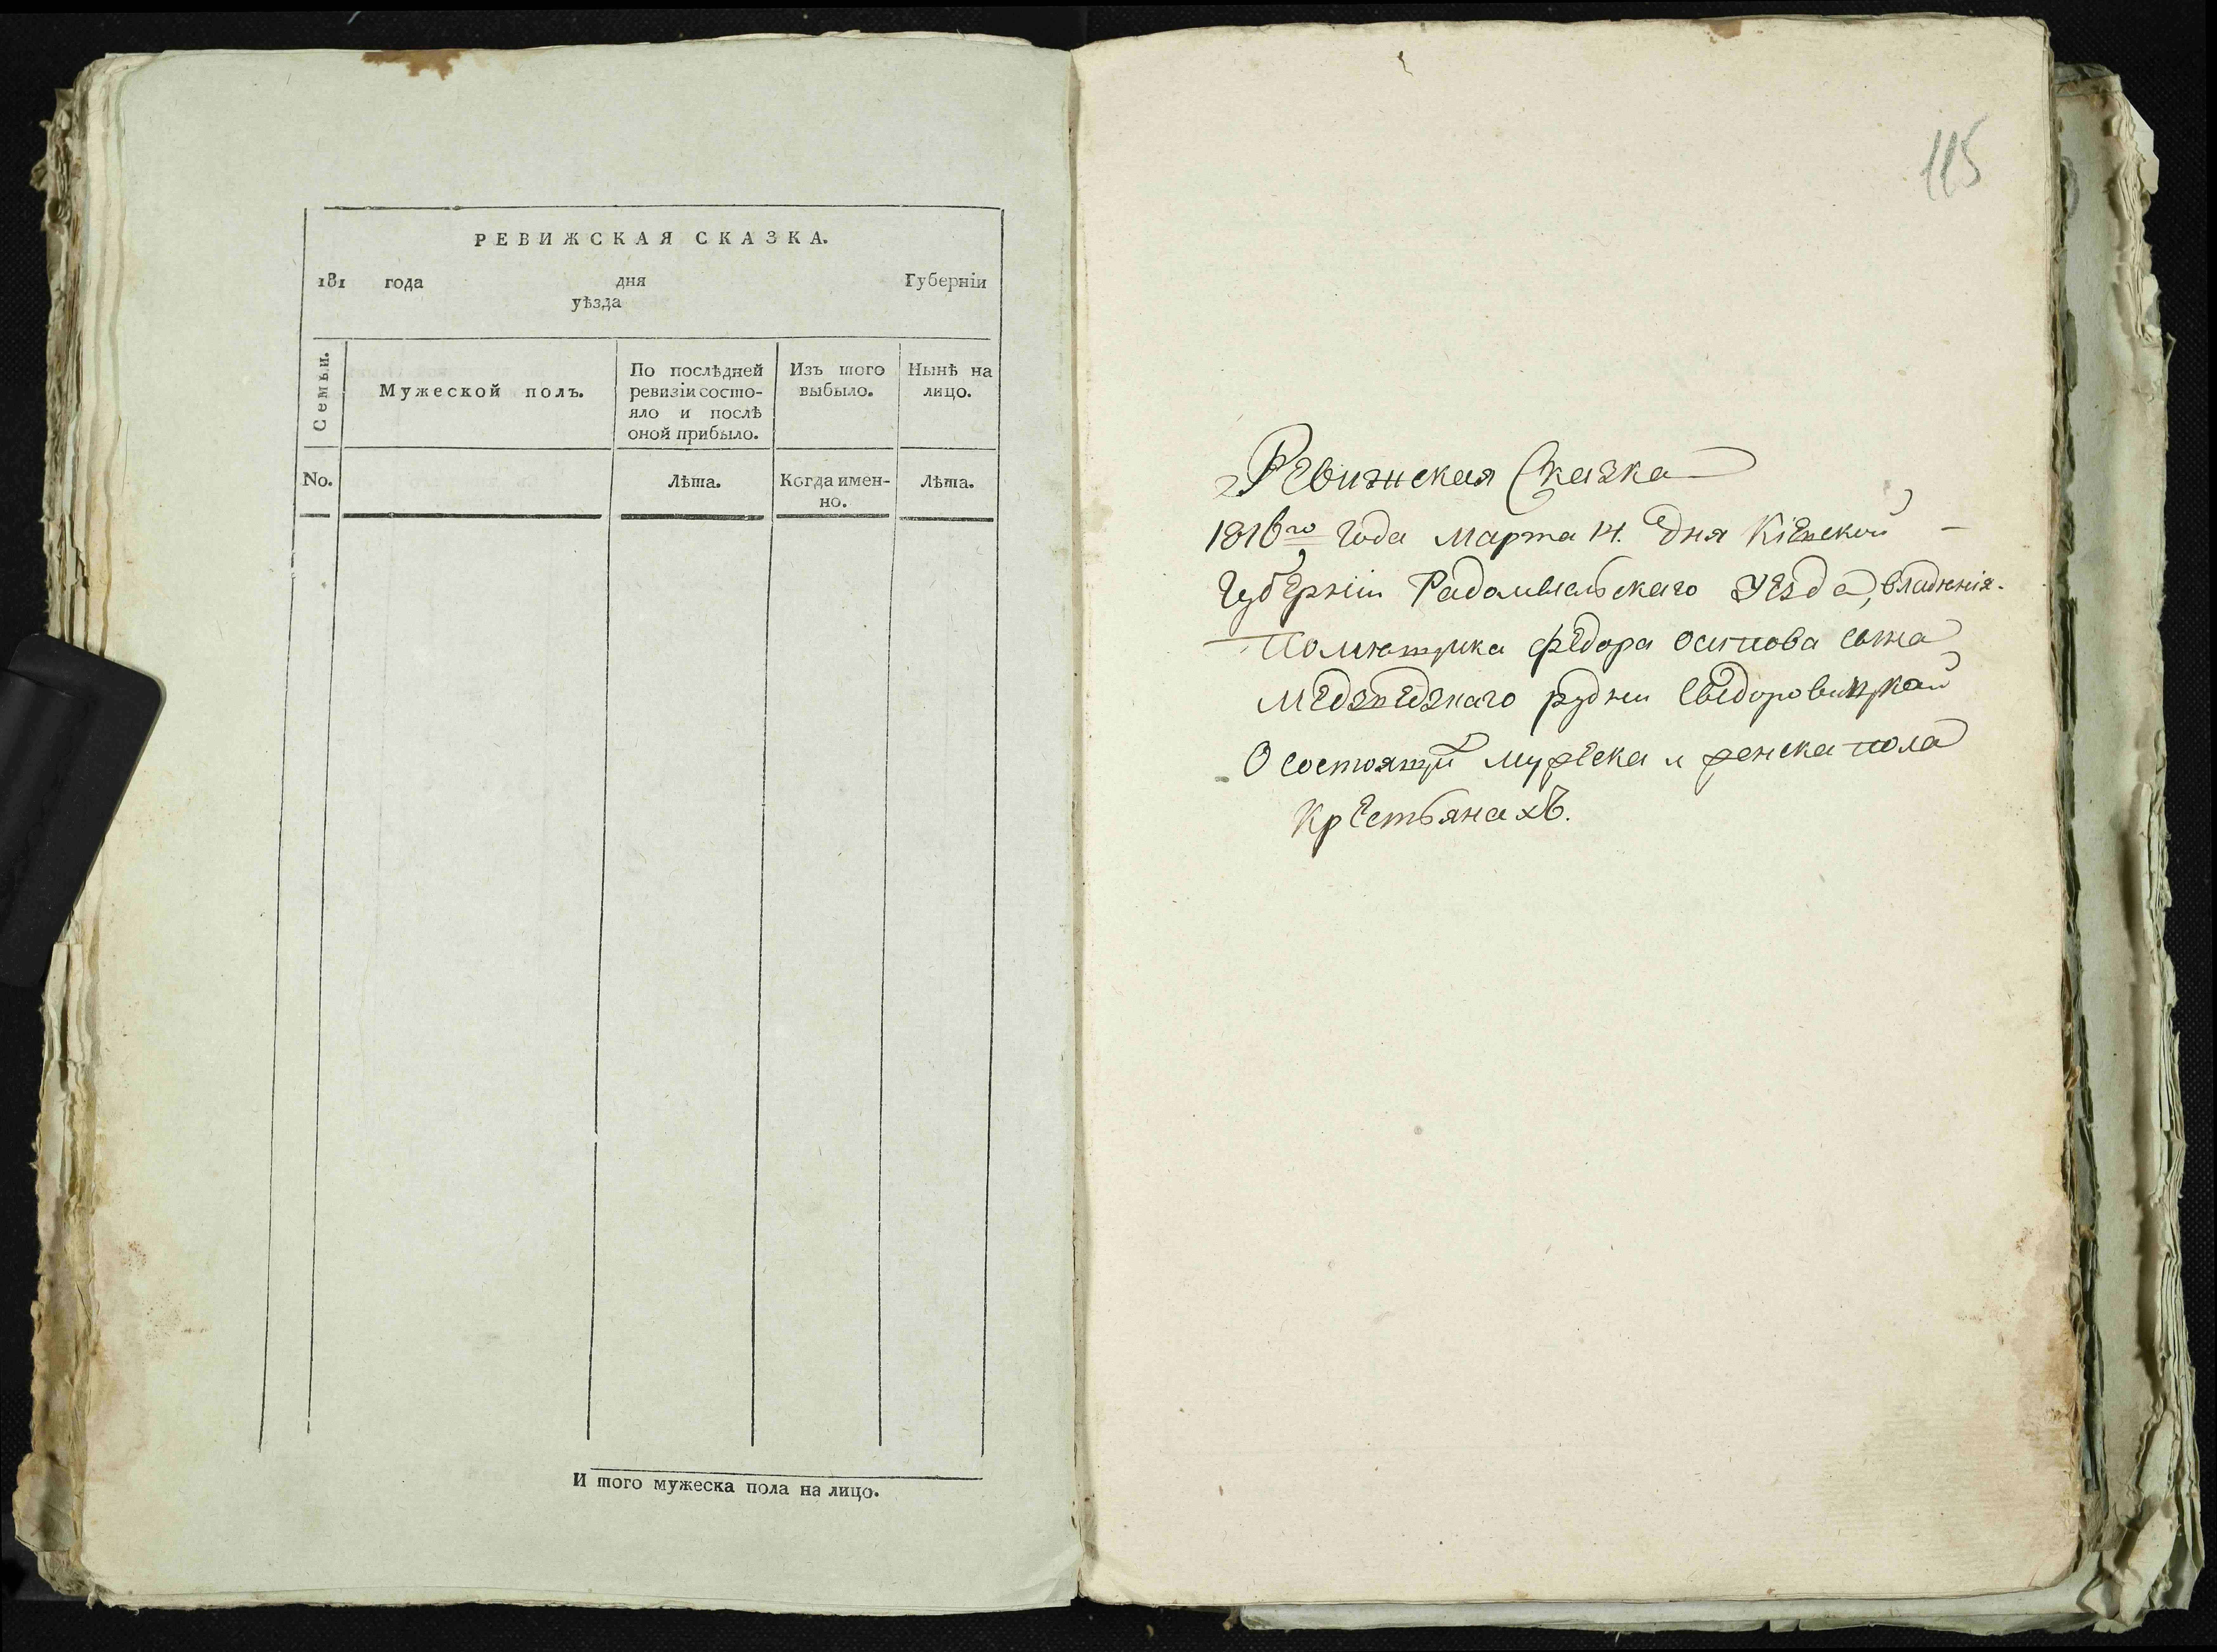 РЕВИЖСКАЯ СКАЗКА.
181 года дня Губерніи
уѣзда
Семьи.
Мужеской полъ.
По послѣдней
ревизіи состо-
яло и послѣ
оной прибыло.
Изъ того
выбыло.
Нынѣ на
лицо.
No.
Лѣта.
Когда имен-
но.
Лѣта.
И того мужеска пола на лицо.
115
Ревижская Сказка
1816го Года Марта 14. Дня Кіевской
Губерніи Радомысльскаго Уезда, владенія
Помещика Федора Осипова сына
рудни Сведоровицкой
О состоящих мужеска и женска пола
Крестьянахъ.